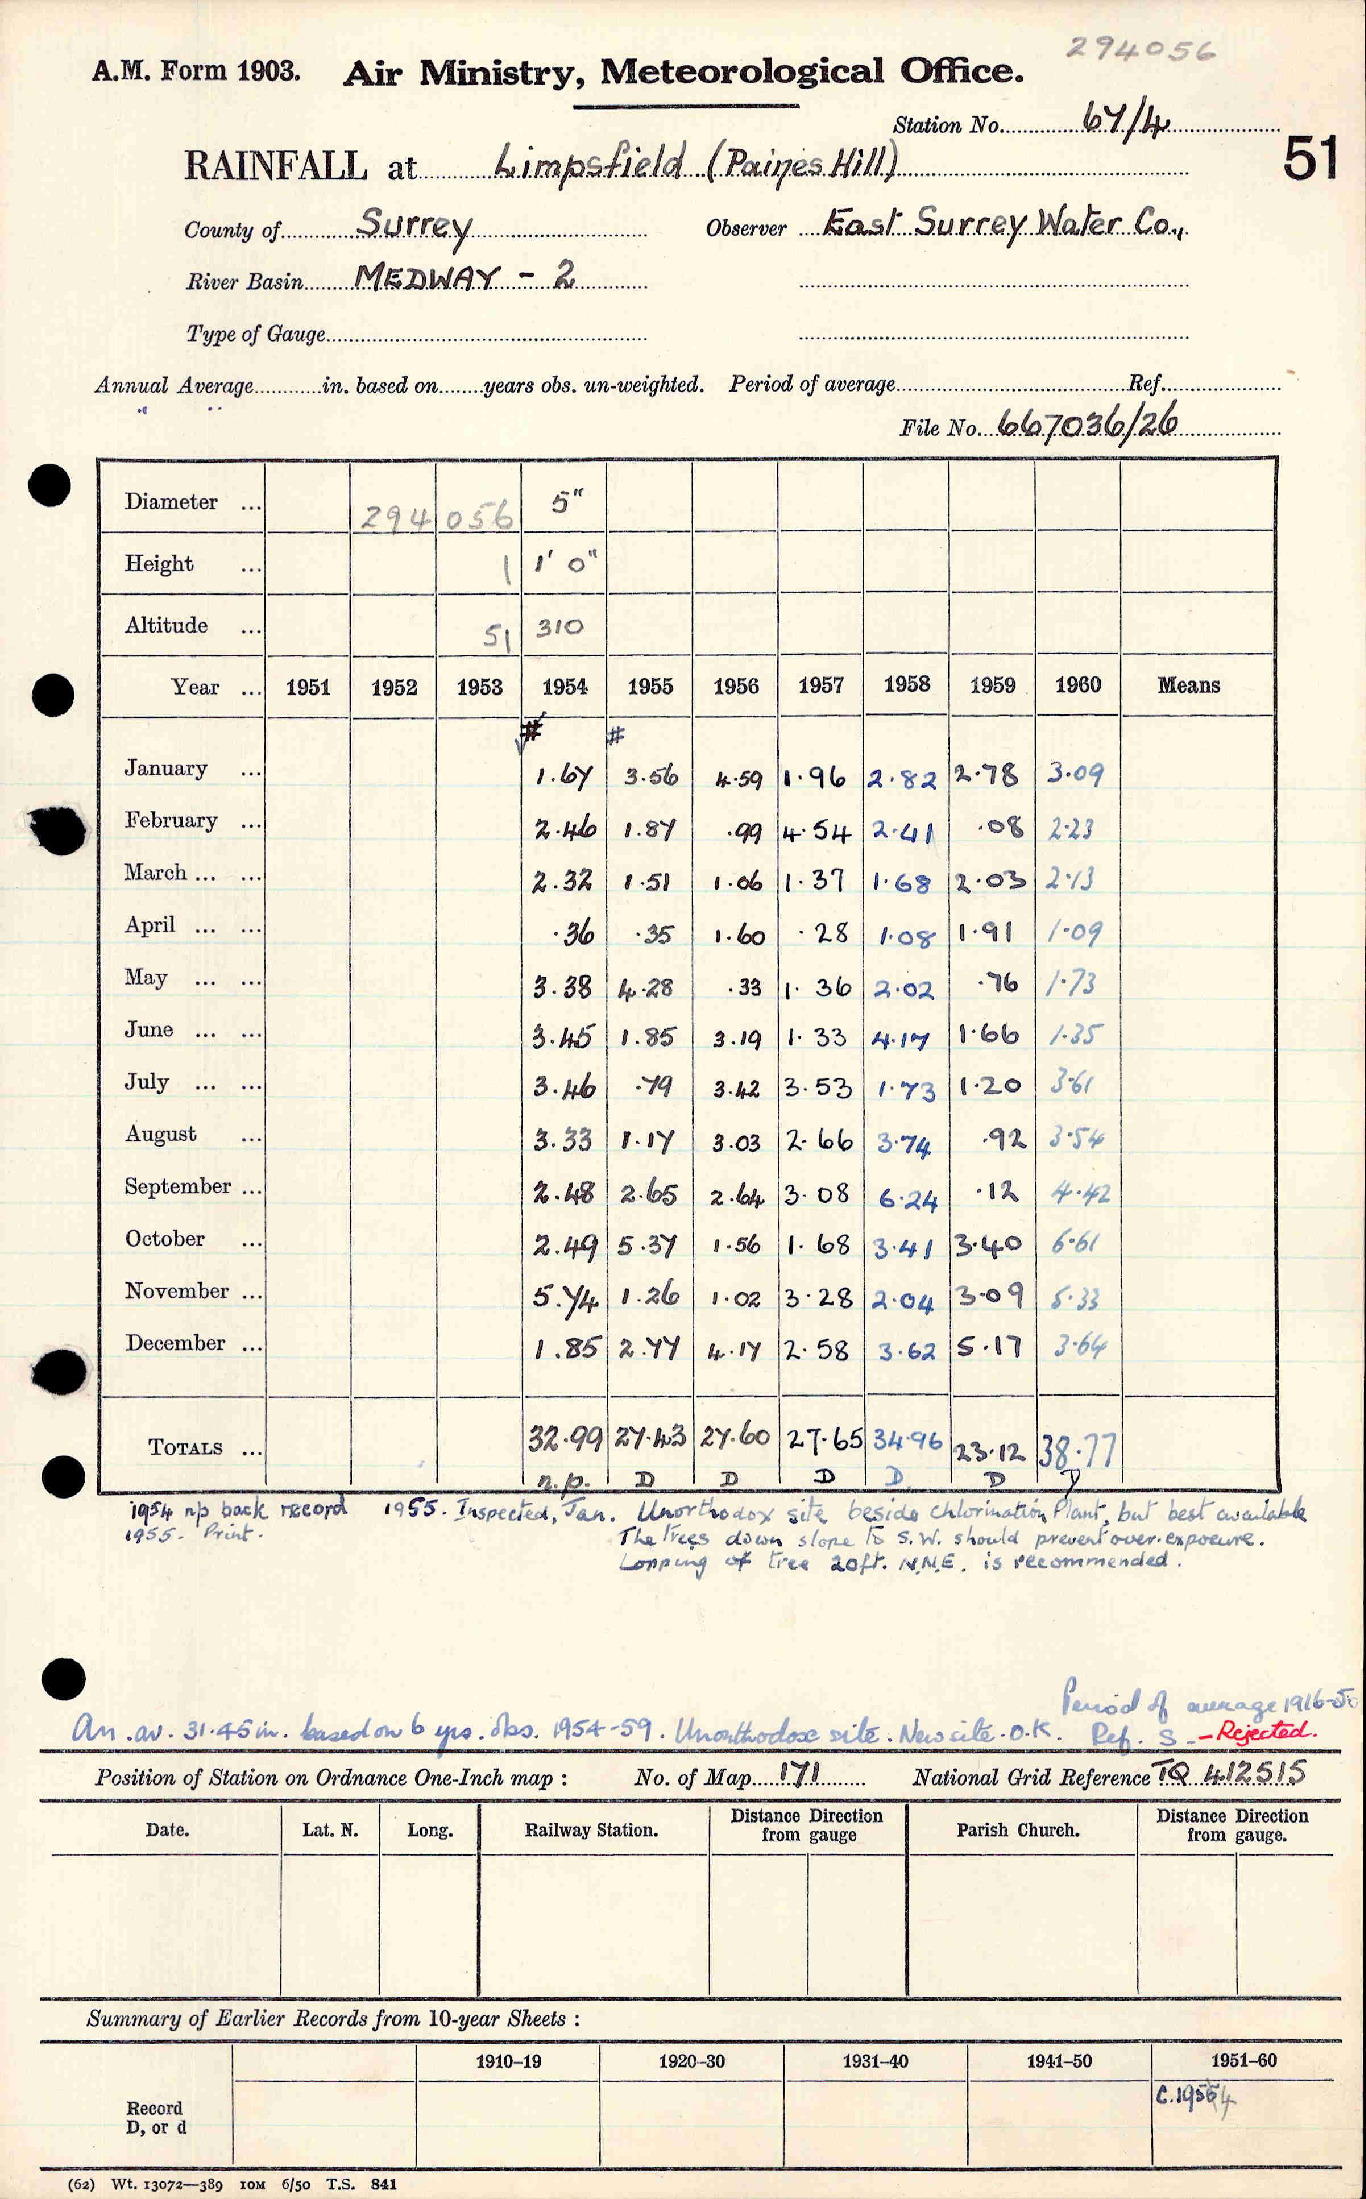 294056
A.M. Form 1903. Air Ministry, Meteorological Office.
Station No. 67/4
51
RAINFALL at Limpsfield (Paines Hill)
County of Surrey Observer East Surrey Water Co.,
River Basin MEDWAY - 2
Type of Gauge
Annual Average in. based on years obs. un-weighted. Period of average Ref.
File No. 667036/26
Diameter ... 294 056 5"
Height ... 1 1' 0"
Altitude ... 51 310
Year ... 1951 1952 1953 1954 1955 1956 1957 1958 1959 1960 Means
# #
January ... 1.67 3.56 4.59 1.96 2.82 2.78 3.09
February ... 2.46 1.87 .99 4.54 2.41 .08 2.23
March ... ... 2.32 1.51 1.06 1.37 1.68 2.03 2.13
April ... ... .36 .35 1.60 .28 1.08 1.91 1.09
May ... ... 3.38 4.28 .33 1.36 2.02 .76 1.73
June ... ... 3.45 1.85 3.19 1.33 4.17 1.66 1.35
July ... ... 3.46 .79 3.42 3.53 1.73 1.20 3.61
August ... 3.33 1.17 3.03 2.66 3.74 .92 3.54
September ... 2.48 2.65 2.64 3.08 6.24 .12 4.42
October ... 2.49 5.37 1.56 1.68 3.41 3.40 6.61
November ... 5.74 1.26 1.02 3.28 2.04 3.09 5.33
December ... 1.85 2.77 4.17 2.58 3.62 5.17 3.64
TOTALS ... 32.99 27.43 27.60 27.65 34.96 23.12 38.77
n.p. D D D D D D
1954 n/p back record 1955. Inspected, Jan. Unorthodox site beside Chlorination Plant, but best available
1955. Print. The trees down slope to S.W. should prevent over-exposure.
Lopping of tree 20ft. N.N.E. is recommended.
Period of average 1916-50
An. av. 31.45 in. based on 6 yrs. obs. 1954-59. Unorthodox site. New site. O.K. Ref. S - Rejected.
Position of Station on Ordnance One-Inch map : No. of Map 171 National Grid Reference TQ 412515
Date. Lat. N. Long. Railway Station. Distance Direction from gauge Parish Church. Distance Direction from gauge.
Summary of Earlier Records from 10-year Sheets :
1910–19 1920–30 1931–40 1941–50 1951–60
Record
D, or d
C.19554
(62) Wt. 13072—389 10M 6/50 T.S. 841